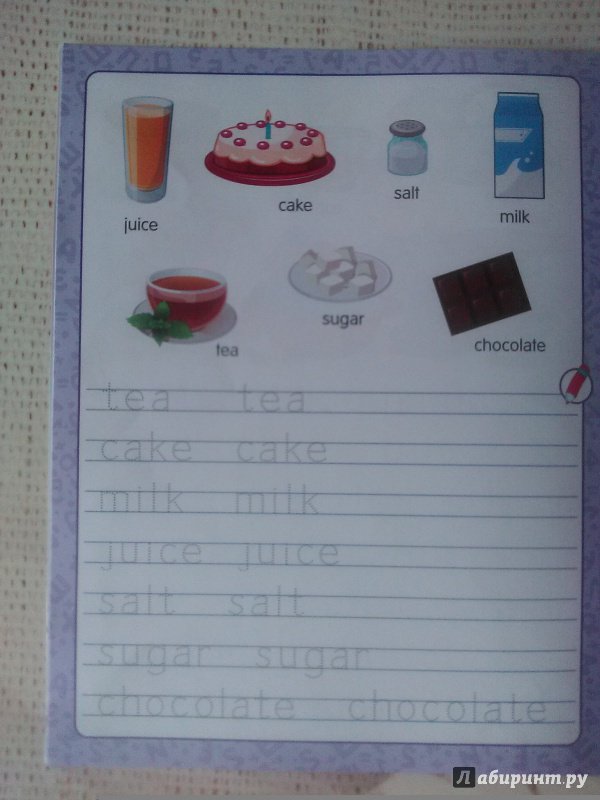 juice
cake
salt
milk
tea
sugar
chocolate
tea tea
cake cake
milk milk
juice juice
salt salt
sugar sugar
chocolate chocolate
Лабиринт.ру